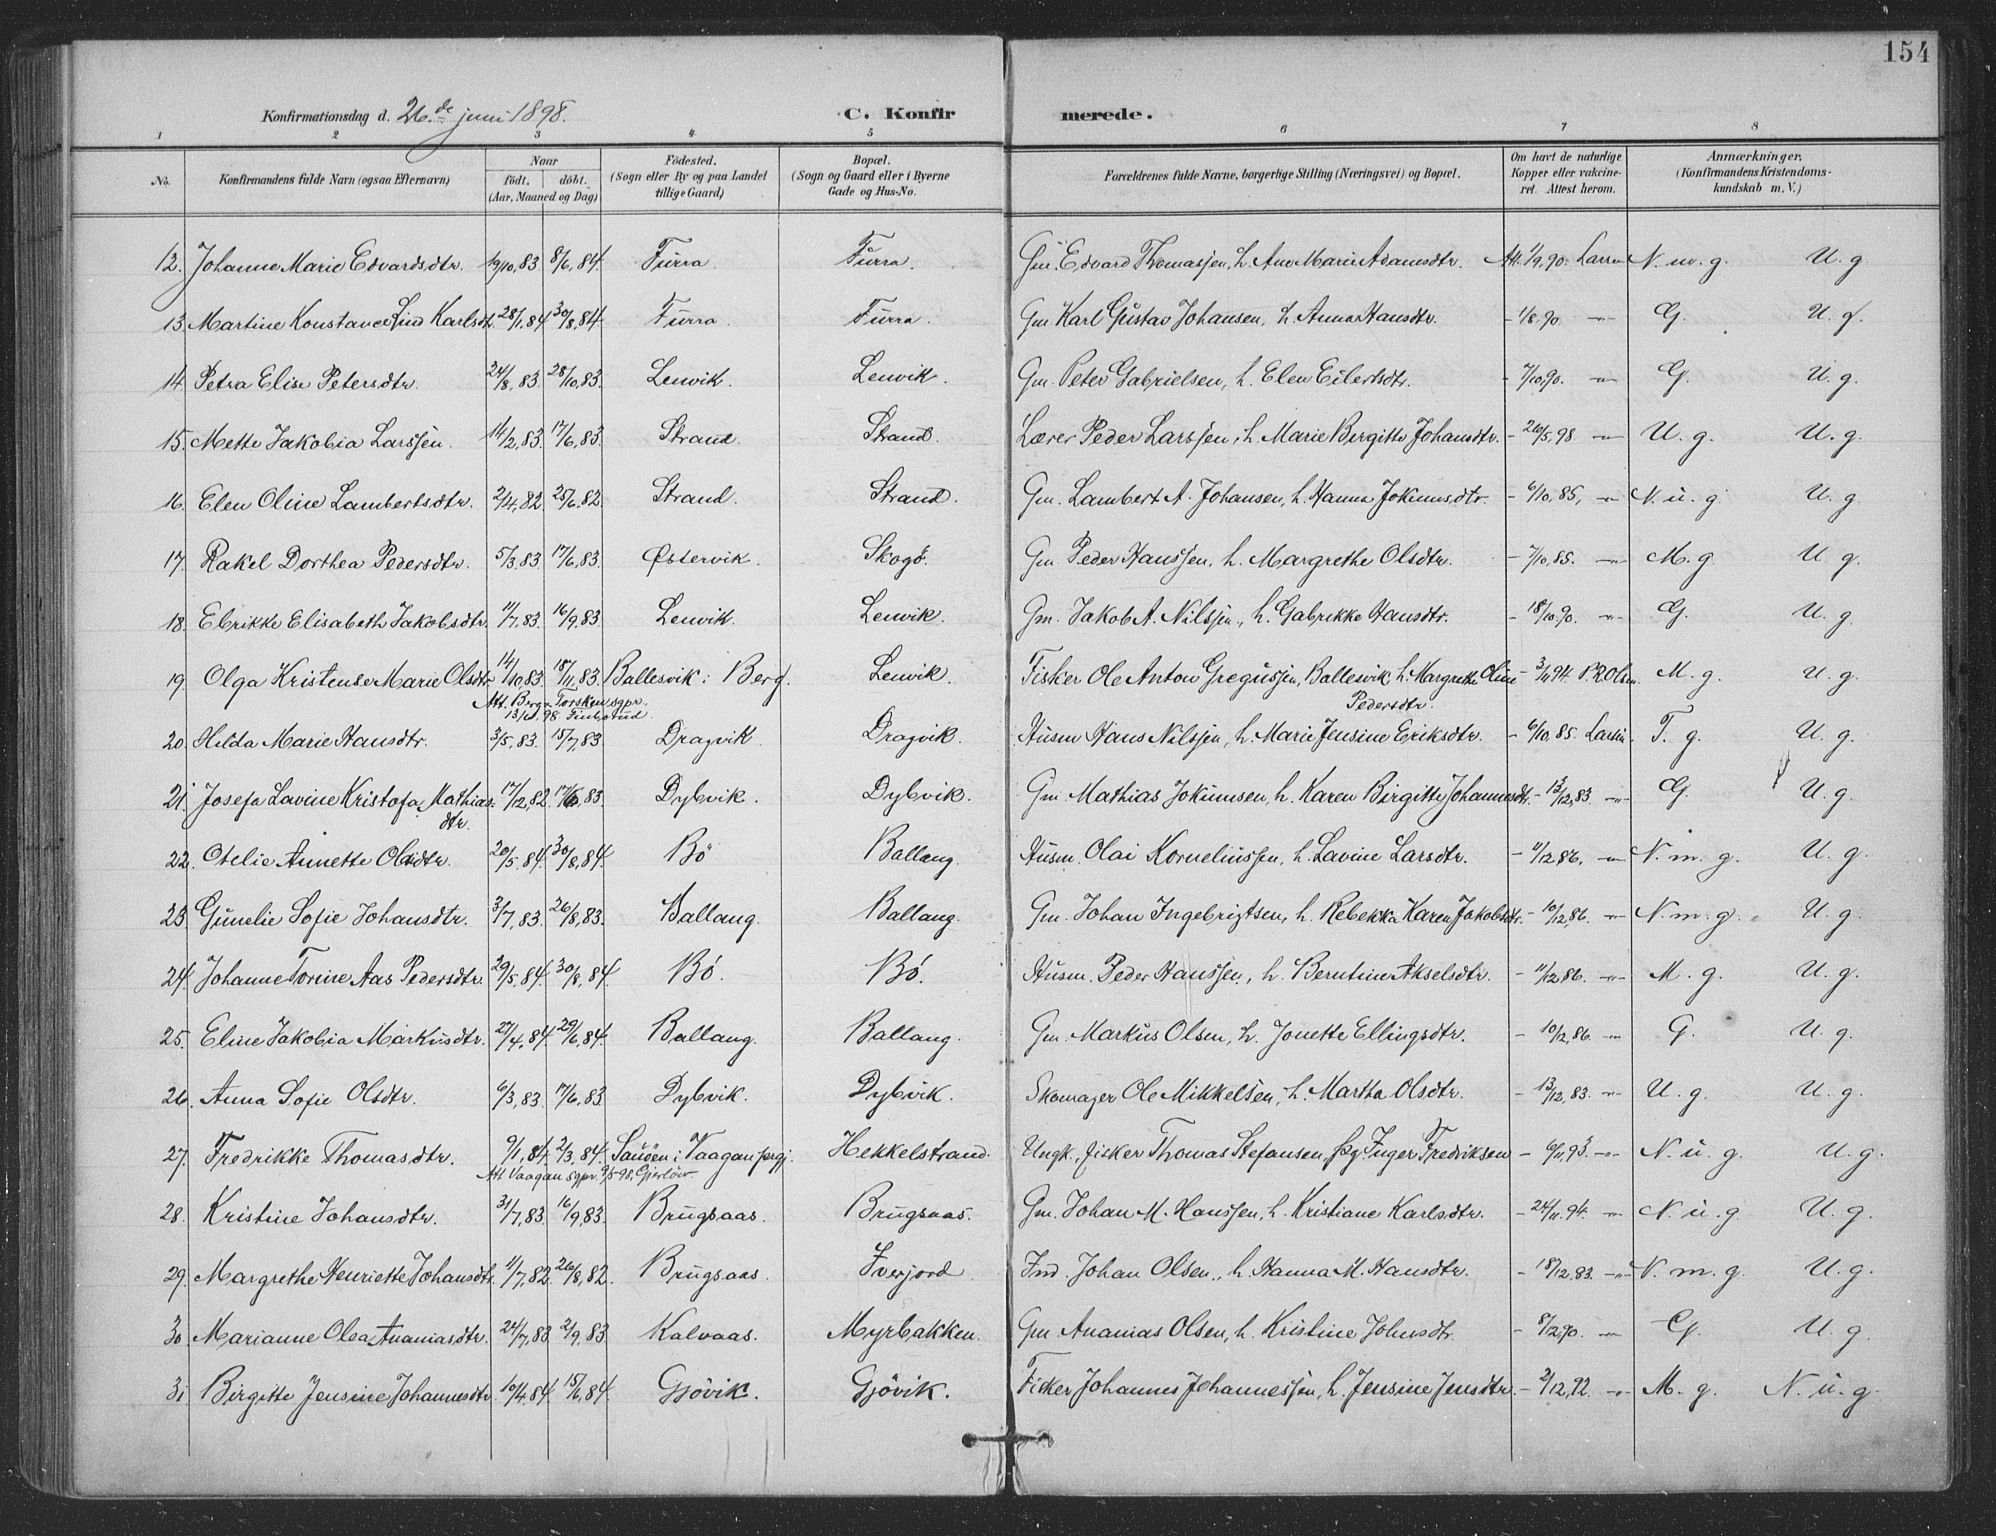 154
Konfirmationsdag d. 26.de juni 1898. C. Konfirmerede.
1 2 3 4 5 6 7 8
No. Konfirmandens fulde Navn (ogsaa Efternavn) Naar födt, döbt. (Aar, Maaned og Dag) Födested. (Sogn eller By og paa Landet tillige Gaard) Bopæl. (Sogn og Gaard eller i Byerne Gade og Hus-No. Forældrenes fulde Navne, borgerlige Stilling (Næringsvei) og Bopæl. Om havt de naturlige Kopper eller vakcineret. Attest herom. Anmærkninger. (Konfirmandens Kristendomskundskab m. V.)
12. Johanne Marie Edvardsdtr. 19/10,83 8/6,84. Furra. Furra. Gm. Edvard Thomassen, h. Ane Marie Adamsdtr. Att. 1/9,90. Larsen N. m. g. U. g.
13. Martine Konstance Lind Karlsdt. 28/1,84. 30/8,84. Furra. Furra. Gm. Karl Gustav Johansen, h. Anna Hansdtr. - 1/8.90. -"- G. U. g.
14. Petra Elise Petersdtr. 24/8,83. 28/10,83. Lenvik. Lenvik. Gm. Peter Gabrielsen, h. Elen Eilertsdtr. - 7/10,90. -"- G. U. g.
15. Mette Jakobia Larssen. 14/2,83. 17/6,83. Strand. Strand. Lærer Peder Larssen, h. Marie Birgitte Johansdtr. - 26/5,98 -"- U. g. U. g.
16. Elen Oline Lambertsdtr. 2/4,82. 25/6,82. Strand. Strand. Gm. Lambert A. Johansen, h. Hanna Jokumsdtr. - 6/10,85, -"- N. u. g. U. g.
17. Rakel Dorthea Pedersdtr. 5/3.83. 17/6,83. Østervik. Skogö. Gm Peder Hanssen, h. Margrethe Olsdtr. - 7/10,85. -"- M. g. U. g.
18. Elrikke Elisabeth Jakobsdtr. 11/7,83. 16/9.83. Lenvik. Lenvik. Gm. Jakob A. Nilssen, h. Gabrikke Hansdtr. - 18/10.90. -"- G. U. g.
19. Olga Kristense Marie Olsdtr 14/10,83. 18/11,83. Ballesvik i Berg. Lenvik. Fisker Ole Anton Gregussen, Ballesvik, h. Margrethe Oline - 3/11,94. P.R.Olsen. M. g. U. g.
Att. Berg & Torsken sgpr. Pedersdtr.
98.
20. Hilda Marie Hansdtr. 3/5,83. 15/7,83. Dragvik. Dragvik. Husm Hans Nilssen, h. Marie Jensine Eriksdtr. - 6/10,85. Larsen. T. g. U. g.
21. Josefa Lavine Kristofa Mathias- 17/12,82. 17/6,83. Dybvik. Dybvik. Gm. Mathias Jokumsen, h. Karen Birgitte Johannesdt. - 13/12,83. -"- G. U. g.
dtr.
22. Otelie Annette Olsdtr. 20/5.84. 30/8,84. Bö Ballang. Husm. Olai Korneliussen, h. Lavine Larsdtr. - 11/12,86. -"- N. m. g. U. g.
23. Gunelie Sofie Johansdtr. 3/7,83. 26/8,83. Ballang. Ballang. Gm. Johan Ingebrigtsen, h. Rebekka Karen Jakobsdtr. - 10/12,86. -"- N. m. g. U. g.
24. Johanne Torine Aas Pedersdtr. 29/5,84. 30/8,84. Bö. Bö. Husm. Peder Hanssen, h. Berntine Akselsdtr. - 11/12,86. -"- M. g. U. g.
25. Eline Jakobia Markusdtr. 27/4,84. 29/6,84. Ballang. Ballang. Gm. Markus Olsen, h. Jonette Ellingsdtr. - 10/12,86. -"- G. U. g.
26. Anna Sofie Olsdtr. 6/3,83. 17/6,83. Dybvik. Dybvik. Skomager Ole Mikkelsen, h. Martha Olsdtr. - 13/12,83. -"- U. g. U. g.
27. Fredrikke Thomasdtr. 9/1,84. 2/3,84. Sandöen i Vaagan prgj. Hekkelstrand. Ungk., fisker Thomas Stefansen, Pg. Inger Fredriksen - 6/11,93. -"- N. u. g. U. g.
Att. Vaagan sgpr. 9/5 98. Gjerlöw.
28. Kristine Johansdtr. 31/7,83. 16/9,83. Brugsaas. Brugsaas. Gm. Johan M. Hanssen, h. Kristiane Karlsdtr. - 24/11,94. -"- N. u. g. U. g.
29. Margrethe Henriette Johansdtr. 11/7,82. 26/8,82. Brugsaas. Iverjord Ind. Johan Olsen, h. Hanna M. Hansdtr. - 18/12.83. -"- N. m. g. U. g.
30. Marianne Olea Ananiasdtr. 24/7,83 2/9,83. Kalvaas. Myrbakken. Gm Ananias Olsen, h. Kristine Johnsdtr. - 8/2,90. -"- G. U. g.
31 Birgitte Jensine Johannesdtr. 10/4,84. 15/6,84. Gjövik. Gjövik. Fisker Johannes Johannessen, h. Jensine Jensdtr. - 2/12,92. -"- M. g. N. u. g.